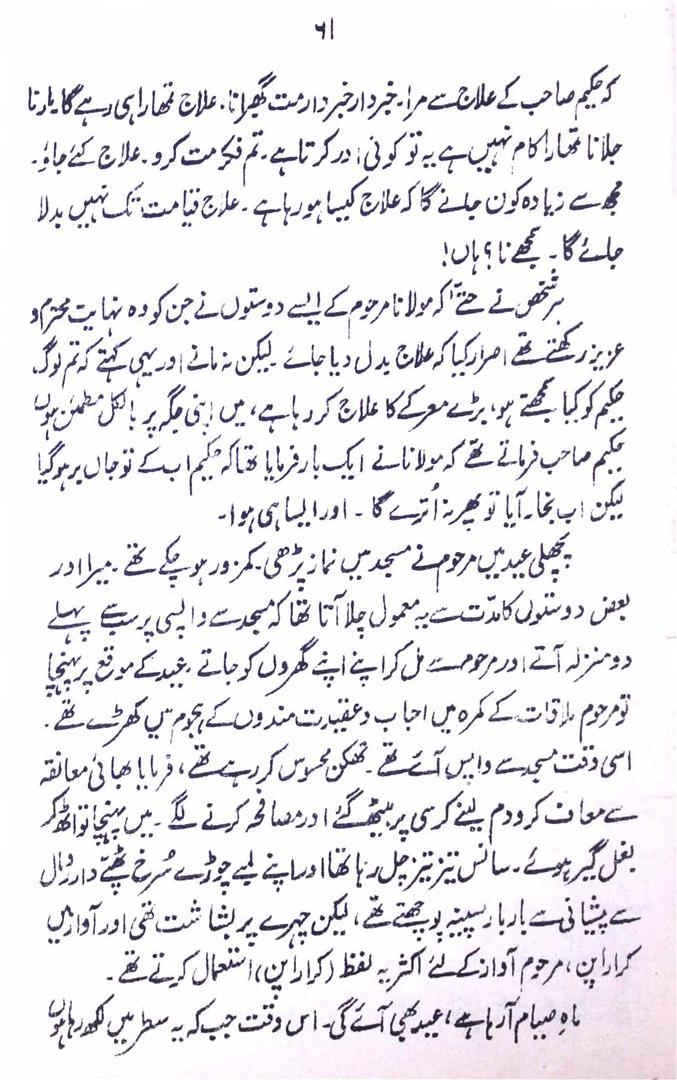 ۶۱
کہ حکیم صاحب کے علاج سے مرا۔ خبردار خبردار مت گھبرانا، علاج تمھارا ہی رہے گا یار نا
جلانا تمھارا کام نہیں ہے یہ تو کوئی اور کرتا ہے۔ تم فکر مت کرو۔ علاج کئے جاؤ۔
مجھ سے زیادہ کون جانے گا کہ علاج کیسا ہو رہا ہے۔ علاج قیامت تک نہیں بدلا
جائے گا۔ سمجھے نا؟ ہاں!
ہر شخص نے حتّٰی کہ مولانا مرحوم کے ایسے دوستوں نے جن کو وہ نہایت محترم و
عزیز رکھتے تھے اصرار کیا کہ علاج بدل دیا جائے لیکن نہ مانے اور یہی کہتے کہ تم لوگ
حکیم کو کیا سمجھتے ہو، بڑے معرکے کا علاج کر رہا ہے، میں اپنی جگہ پر بالکل مطمئن ہوں
حکیم صاحب فرماتے تھے کہ مولانا نے ایک بار فرمایا تھا کہ حکیم اب کے تو جاں بر ہو گیا
لیکن اب بخار آیا تو پھر نہ اُترے گا۔ اور ایسا ہی ہوا۔
پچھلی عید میں مرحوم نے مسجد میں نماز پڑھی۔ کمزور ہو چکے تھے۔ میرا اور
بعض دوستوں کا مدّت سے یہ معمول چلا آتا تھا کہ مسجد سے واپسی پر سب سے پہلے
دو منزلہ آتے اور مرحوم سے مل کر اپنے اپنے گھروں کو جاتے۔ عید کے موقع پر پہنچا
تو مرحوم ملاقات کے کمرہ میں احباب و عقیدت مندوں کے ہجوم میں کھڑے تھے۔
اسی وقت مسجد سے واپس آئے تھے۔ تھکن محسوس کر رہے تھے، فرمایا بھائی معانقہ
سے معاف کرو دم لینے کرسی پر بیٹھ گئے اور مصافحہ کرنے لگے۔ میں پہنچا تو اٹھ کر
بغل گیر ہوئے۔ سانس تیز تیز چل رہا تھا اور اپنے لمبے چوڑے سُرخ پھٹے دار رومال
سے پیشانی سے بار بار پسینہ پوچھتے تھے، لیکن چہرے پر بشاشت تھی اور آواز میں
کرارا پن، مرحوم آواز کے لئے اکثر یہ لفظ (کرارا پن) استعمال کرتے تھے۔
ماہِ صیام آ رہا ہے، عید بھی آئے گی۔ اس وقت جب کہ یہ سطریں لکھ رہا ہوں